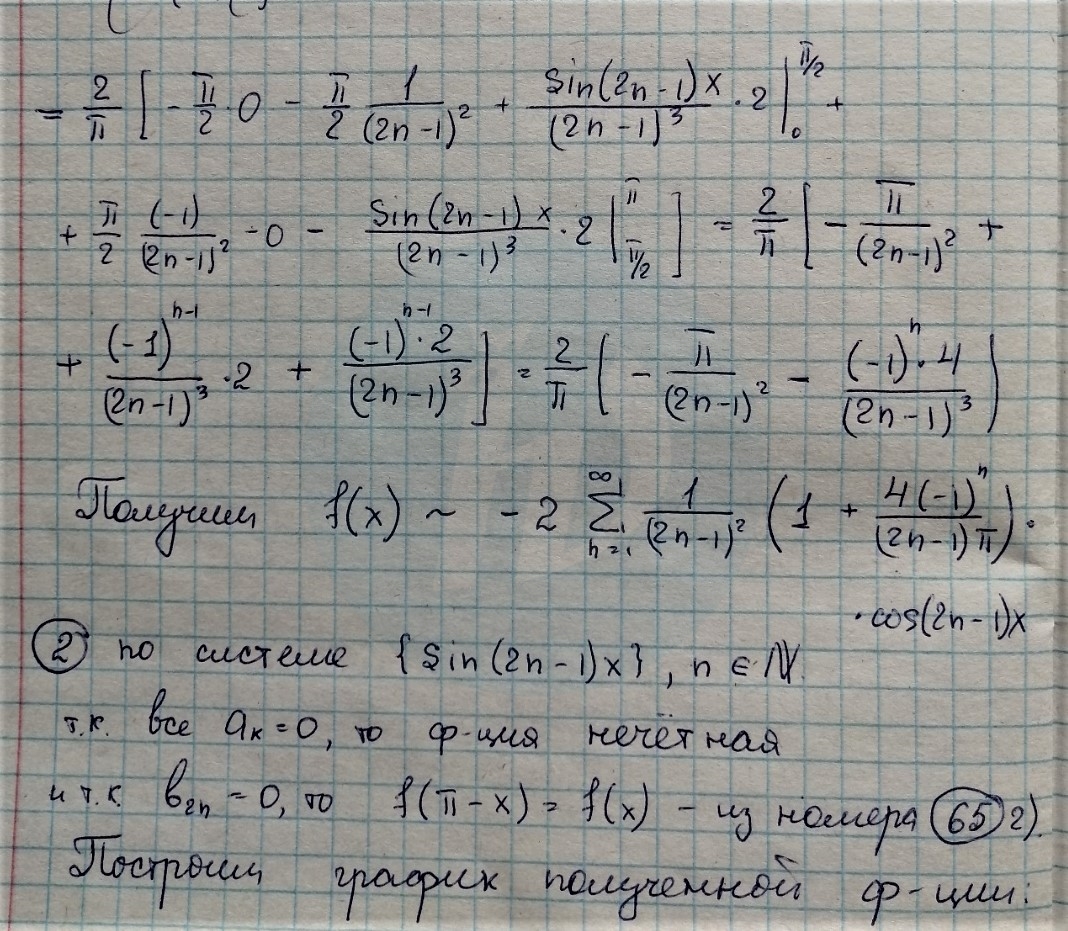 = 2/π [ - π/2 · 0 - π/2 1/(2n-1)² + sin(2n-1)x/(2n-1)³ · 2 |₀^{π/2} +
+ π/2 (-1)/(2n-1)² - 0 - sin(2n-1)x/(2n-1)³ · 2 |_{π/2}^{π} ] = 2/π [ - π/(2n-1)² +
+ (-1)^{n-1}/(2n-1)³ · 2 + (-1)^{n-1} · 2/(2n-1)³ ] = 2/π ( - π/(2n-1)² - (-1)ⁿ · 4/(2n-1)³ )
Получим f(x) ~ - 2 ∑_{n=1}^{∞} 1/(2n-1)² ( 1 + 4(-1)ⁿ/(2n-1)π ) ·
· cos(2n-1)x
② по системе {sin(2n-1)x}, n ∈ ℕ.
т.к. все aₖ = 0, то ф-ция нечётная
и т.к. b₂ₙ = 0, то f(π-x) = f(x) - из номера (65) г).
Построим график полученной ф-ции: